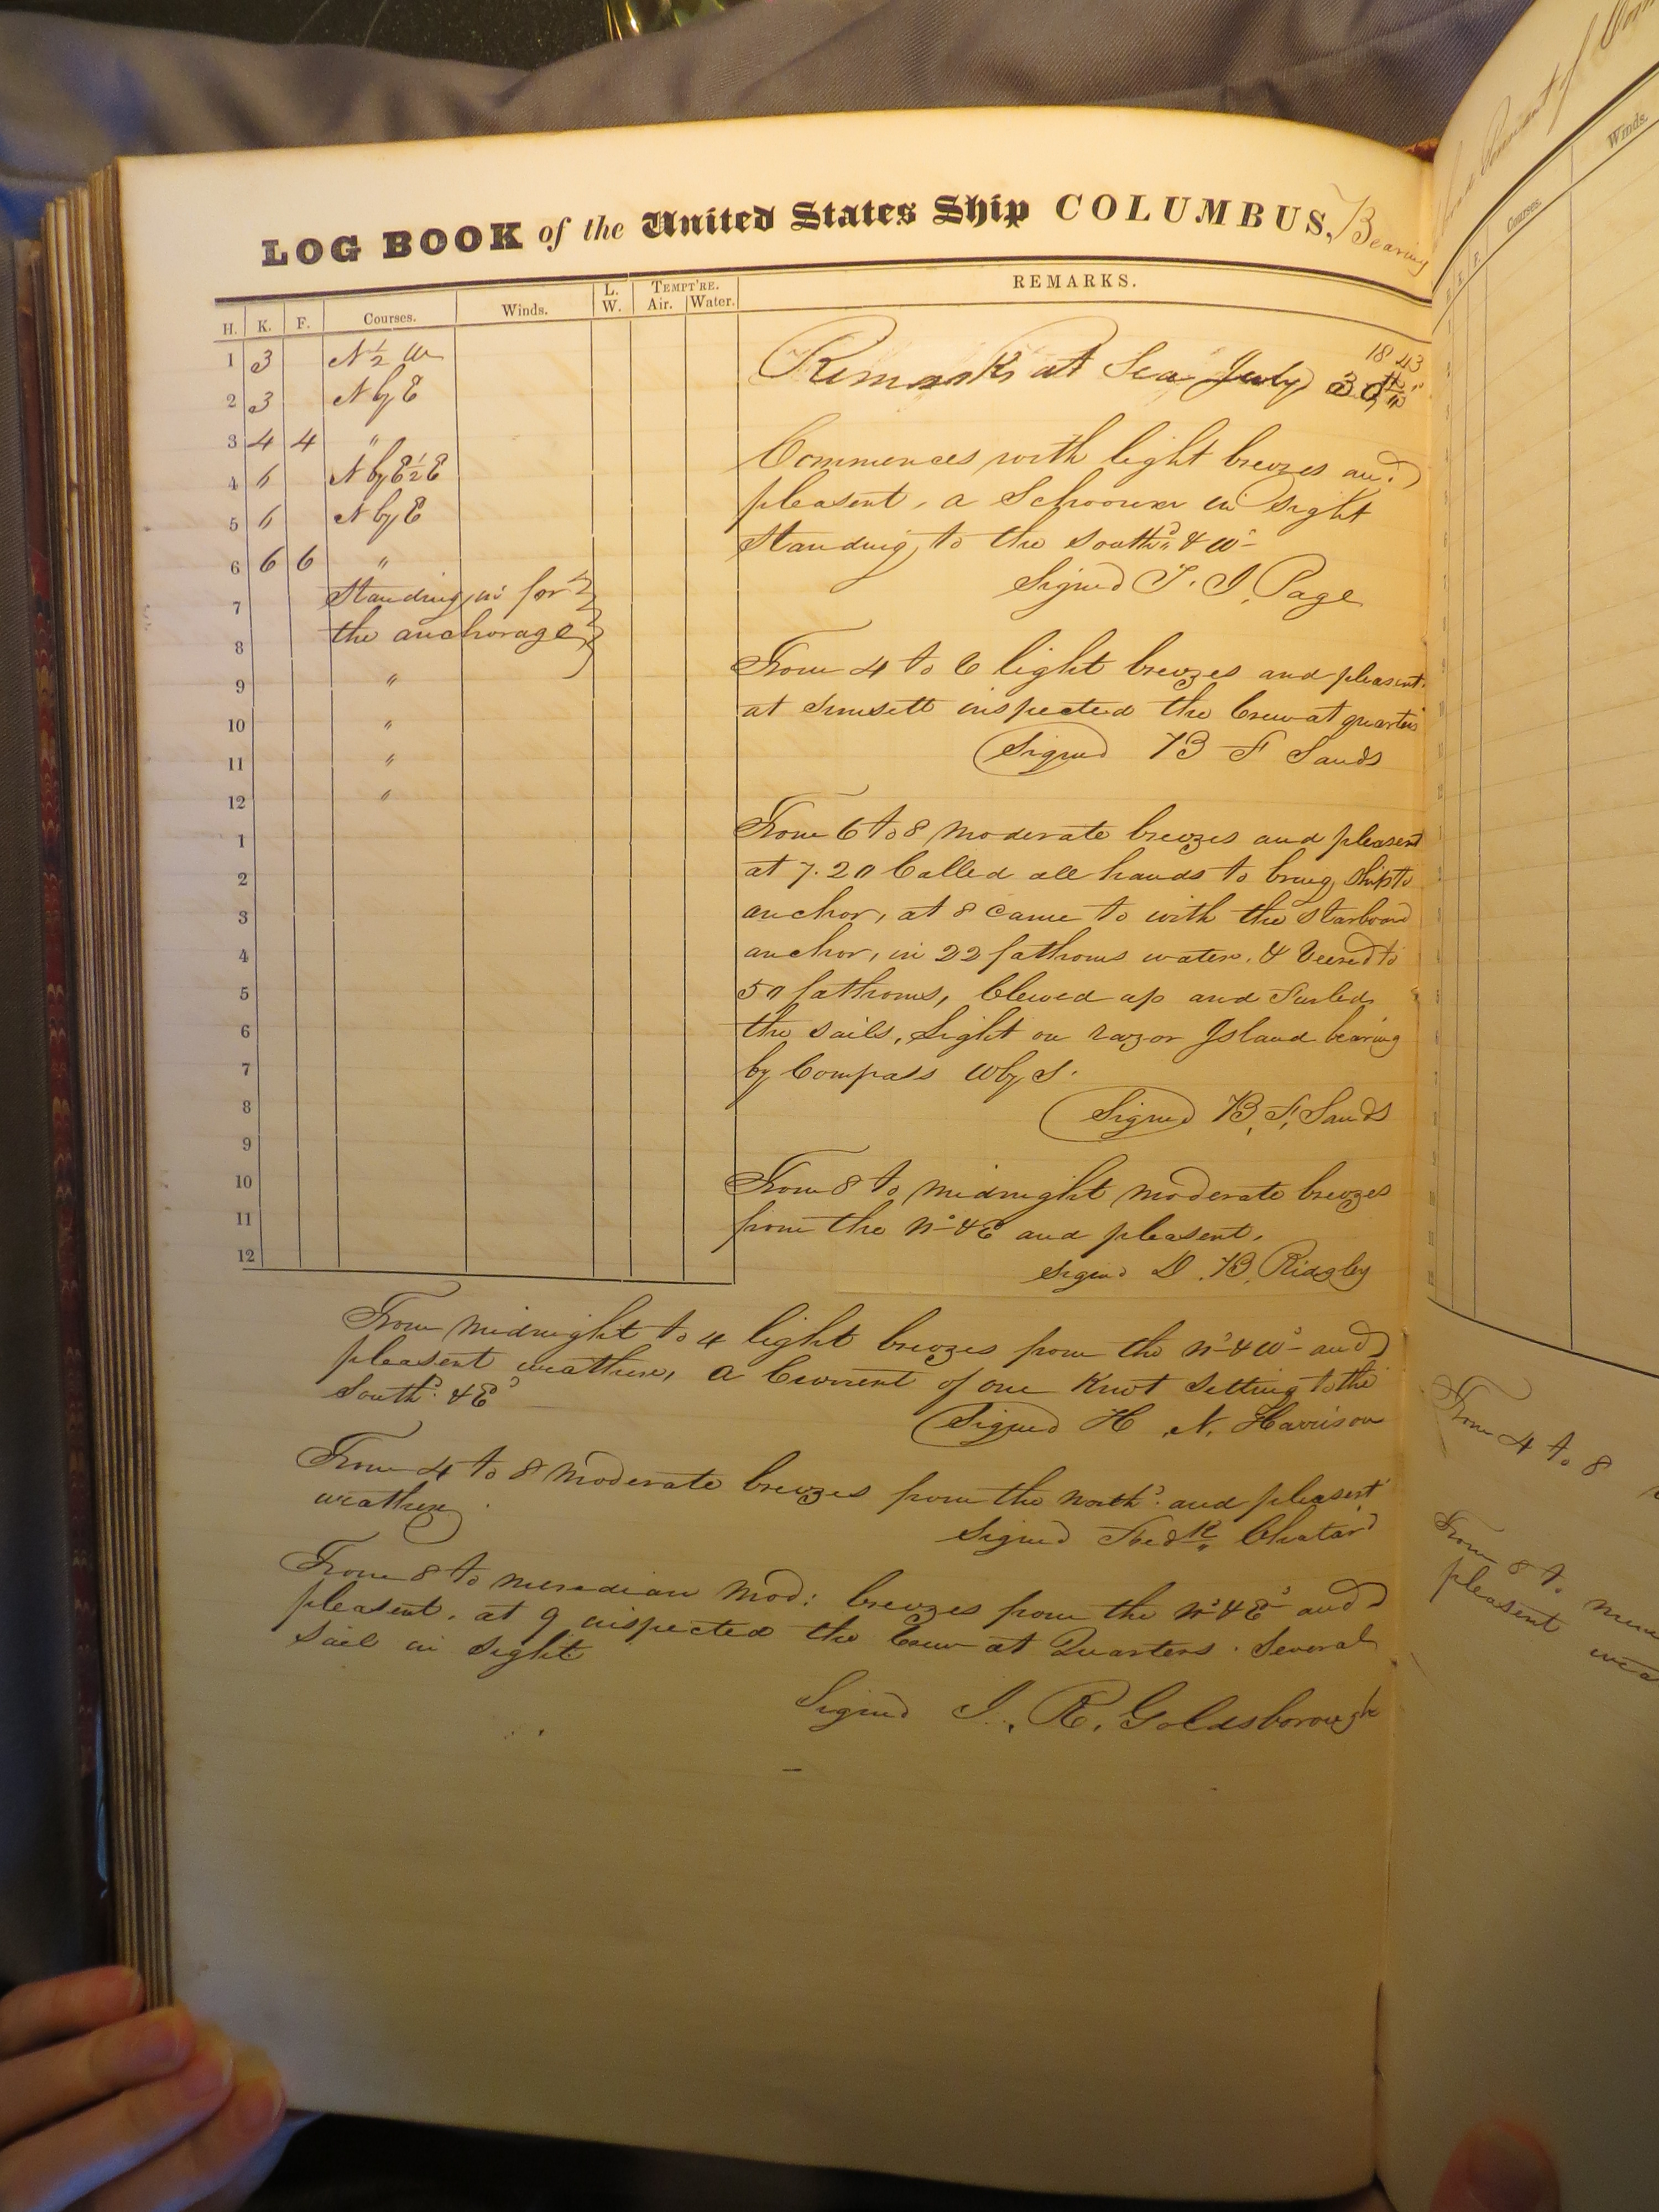 LOG BOOK of the United States Ship COLUMBUS, Bearing
H. K. F. Courses. Winds. L. W. TEMPT'RE. Air. Water. REMARKS.
1 3 N ½ W
2 3 N by E
3 4 4 "
4 6 N by E ½ E
5 6 N by E
6 6 6 "
7 Standing in for
8 the anchorage
9 "
10 "
11 "
12 "
1
2
3
4
5
6
7
8
9
10
11
12
1843
Remarks at Sea July 30th
Commences with light breezes and
pleasent, a Schooner in Sight
Standing to the Southd & Wd
Signed T. J. Page
From 4 to 6 light breezes and pleasent.
at Sunsett inspected the Crew at quarters
Signed B F Sands
From 6 to 8 moderate breezes and pleasent
at 7.20 Called all hands to bring Ship to
anchor, at 8 came to with the Starboard
anchor, in 22 fathoms water. & Veered to
50 fathoms, Clewed up and Furled
the Sails, Light on razor Island bearing
by Compass W by S.
Signed B. F. Sands
From 8 to midnight moderate breezes
from the Nd & Ed and pleasent.
Signed D. B. Ridgley
From midnight to 4 light breezes from the Nd & Wd and
pleasent weather, a Current of one Knot Setting to the
Southd & Ed
Signed H. N. Harrison
From 4 to 8 Moderate breezes from the Northd and pleasent
weather
Signed Fredk Chatard
From 8 to meredian Mod: breezes from the Nd & Ed and
pleasent. at 9 inspected the Crew at Quarters. Several
Sail in Sight
Signed J. R. Goldsborough
Winds.
Courses.
From 4 to 8
From 8 to
pleasent